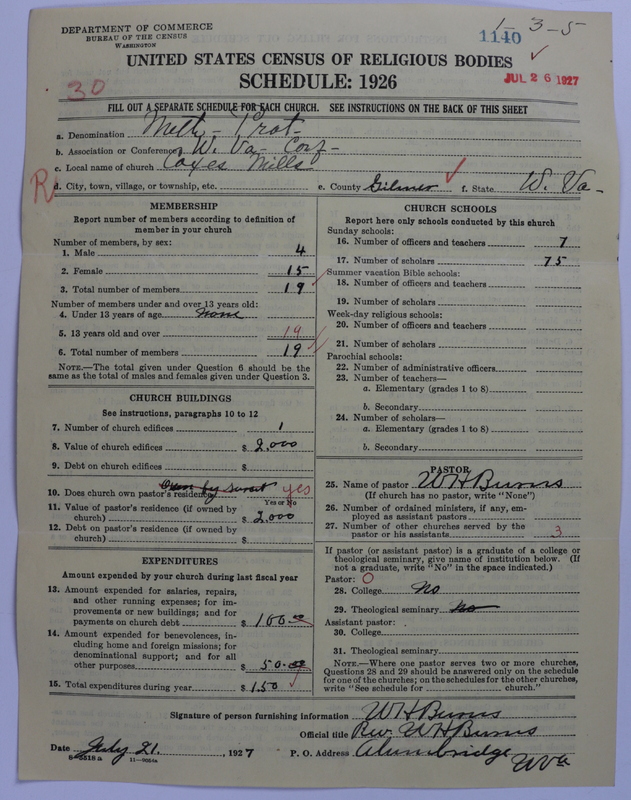 DEPARTMENT OF COMMERCE
BUREAU OF THE CENSUS
WASHINGTON
1-3-5
1140
UNITED STATES CENSUS OF RELIGIOUS BODIES
SCHEDULE: 1926
JUL 26 1927
30
FILL OUT A SEPARATE SCHEDULE FOR EACH CHURCH. SEE INSTRUCTIONS ON THE BACK OF THIS SHEET
a. Denomination Meth- Prot-
b. Association or Conference W. Va- Conf-
c. Local name of church Coxes Mills
R
d. City, town, village, or township, etc. e. County Gilmer f. State W. Va-
MEMBERSHIP
Report number of members according to definition of
member in your church
Number of members, by sex:
1. Male 4
2. Female 15
3. Total number of members 19
Number of members under and over 13 years old:
4. Under 13 years of age none
5. 13 years old and over 19
6. Total number of members 19
NOTE.—The total given under Question 6 should be the
same as the total of males and females given under Question 3.
CHURCH BUILDINGS
See instructions, paragraphs 10 to 12
7. Number of church edifices 1
8. Value of church edifices $ 2,000
9. Debt on church edifices $
10. Does church own pastor's residence? yes
Yes or No
11. Value of pastor's residence (if owned by
church) $ 2,000
12. Debt on pastor's residence (if owned by
church) $
EXPENDITURES
Amount expended by your church during last fiscal year
13. Amount expended for salaries, repairs,
and other running expenses; for im-
provements or new buildings; and for
payments on church debt $ 100.00
14. Amount expended for benevolences, in-
cluding home and foreign missions; for
denominational support; and for all
other purposes $ 50.00
15. Total expenditures during year $ 150
CHURCH SCHOOLS
Report here only schools conducted by this church
Sunday schools:
16. Number of officers and teachers 7
17. Number of scholars 75
Summer vacation Bible schools:
18. Number of officers and teachers
19. Number of scholars
Week-day religious schools:
20. Number of officers and teachers
21. Number of scholars
Parochial schools:
22. Number of administrative officers
23. Number of teachers—
a. Elementary (grades 1 to 8)
b. Secondary
24. Number of scholars—
a. Elementary (grades 1 to 8)
b. Secondary
PASTOR
25. Name of pastor W H Burns
(If church has no pastor, write "None")
26. Number of ordained ministers, if any, em-
ployed as assistant pastors
27. Number of other churches served by the
pastor or his assistants 3
If pastor (or assistant pastor) is a graduate of a college or
theological seminary, give name of institution below. (If
not a graduate, write "No" in the space indicated.)
Pastor: O
28. College No
29. Theological seminary No
Assistant pastor:
30. College
31. Theological seminary
NOTE.—Where one pastor serves two or more churches,
Questions 28 and 29 should be answered only on the schedule
for one of the churches; on the schedules for the other churches,
write "See schedule for church."
Signature of person furnishing information W H Burns
Official title Rev. W H Burns
Date July 21, 1927 P. O. Address Alumbridge WVa
8-5518a 11-9054a